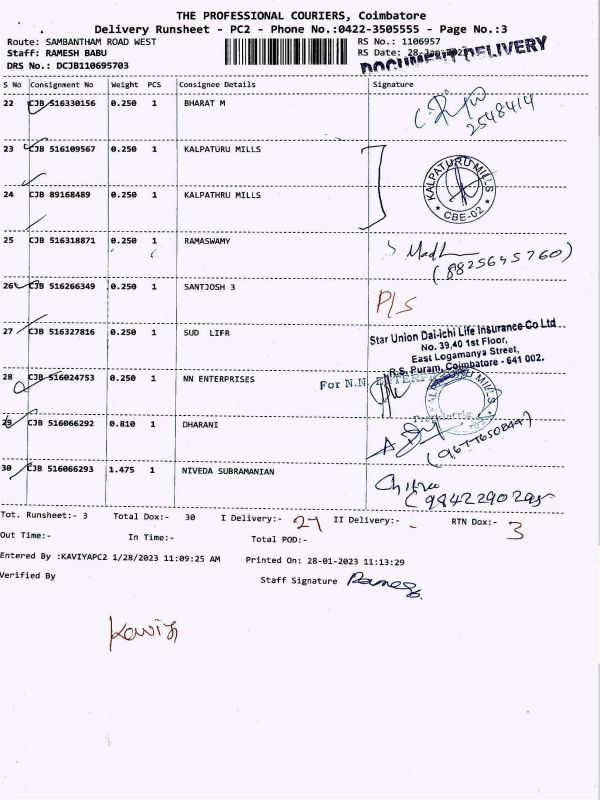 THE PROFESSIONAL COURIERS, Coimbatore
Delivery Runsheet - PC2 - Phone No.:0422-3505555 - Page No.:3
Route: SAMBANTHAM ROAD WEST RS No.: 1106957
Staff: RAMESH BABU RS Date: 28-Jan-2023
DRS No.: DCJB110695703 DOCUMENT DELIVERY
S No Consignment No Weight PCS Consignee Details Signature
22 CJB 516330156 0.250 1 BHARAT M
2548414
23 CJB 516109567 0.250 1 KALPATURU MILLS
KALPATURU MILLS
CBE-02
24 CJB 89168489 0.250 1 KALPATHRU MILLS
25 CJB 516318871 0.250 1 RAMASWAMY
(8825645760)
26 CJB 516266349 0.250 1 SANTJOSH 3
P/S
27 CJB 516327816 0.250 1 SUD LIFR
Star Union Dai-ichi Life Insurance Co Ltd
No. 39,40 1st Floor,
East Logamanya Street,
R.S. Puram, Coimbatore - 641 002.
28 CJB 516024753 0.250 1 NN ENTERPRISES
For N.N. ENTERPRISES
29 CJB 516066292 0.810 1 DHARANI
30 CJB 516066293 1.475 1 NIVEDA SUBRAMANIAN
Tot. Runsheet:- 3 Total Dox:- 30 I Delivery:- 27 II Delivery:- - RTN Dox:- 3
Out Time:- In Time:- Total POD:-
Entered By :KAVIYAPC2 1/28/2023 11:09:25 AM Printed On: 28-01-2023 11:13:29
Verified By Staff Signature